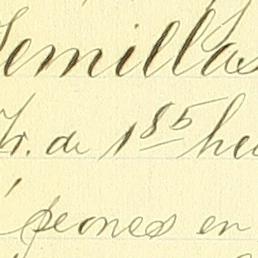 Semillas
Fr. de 1 85 hec
peones en